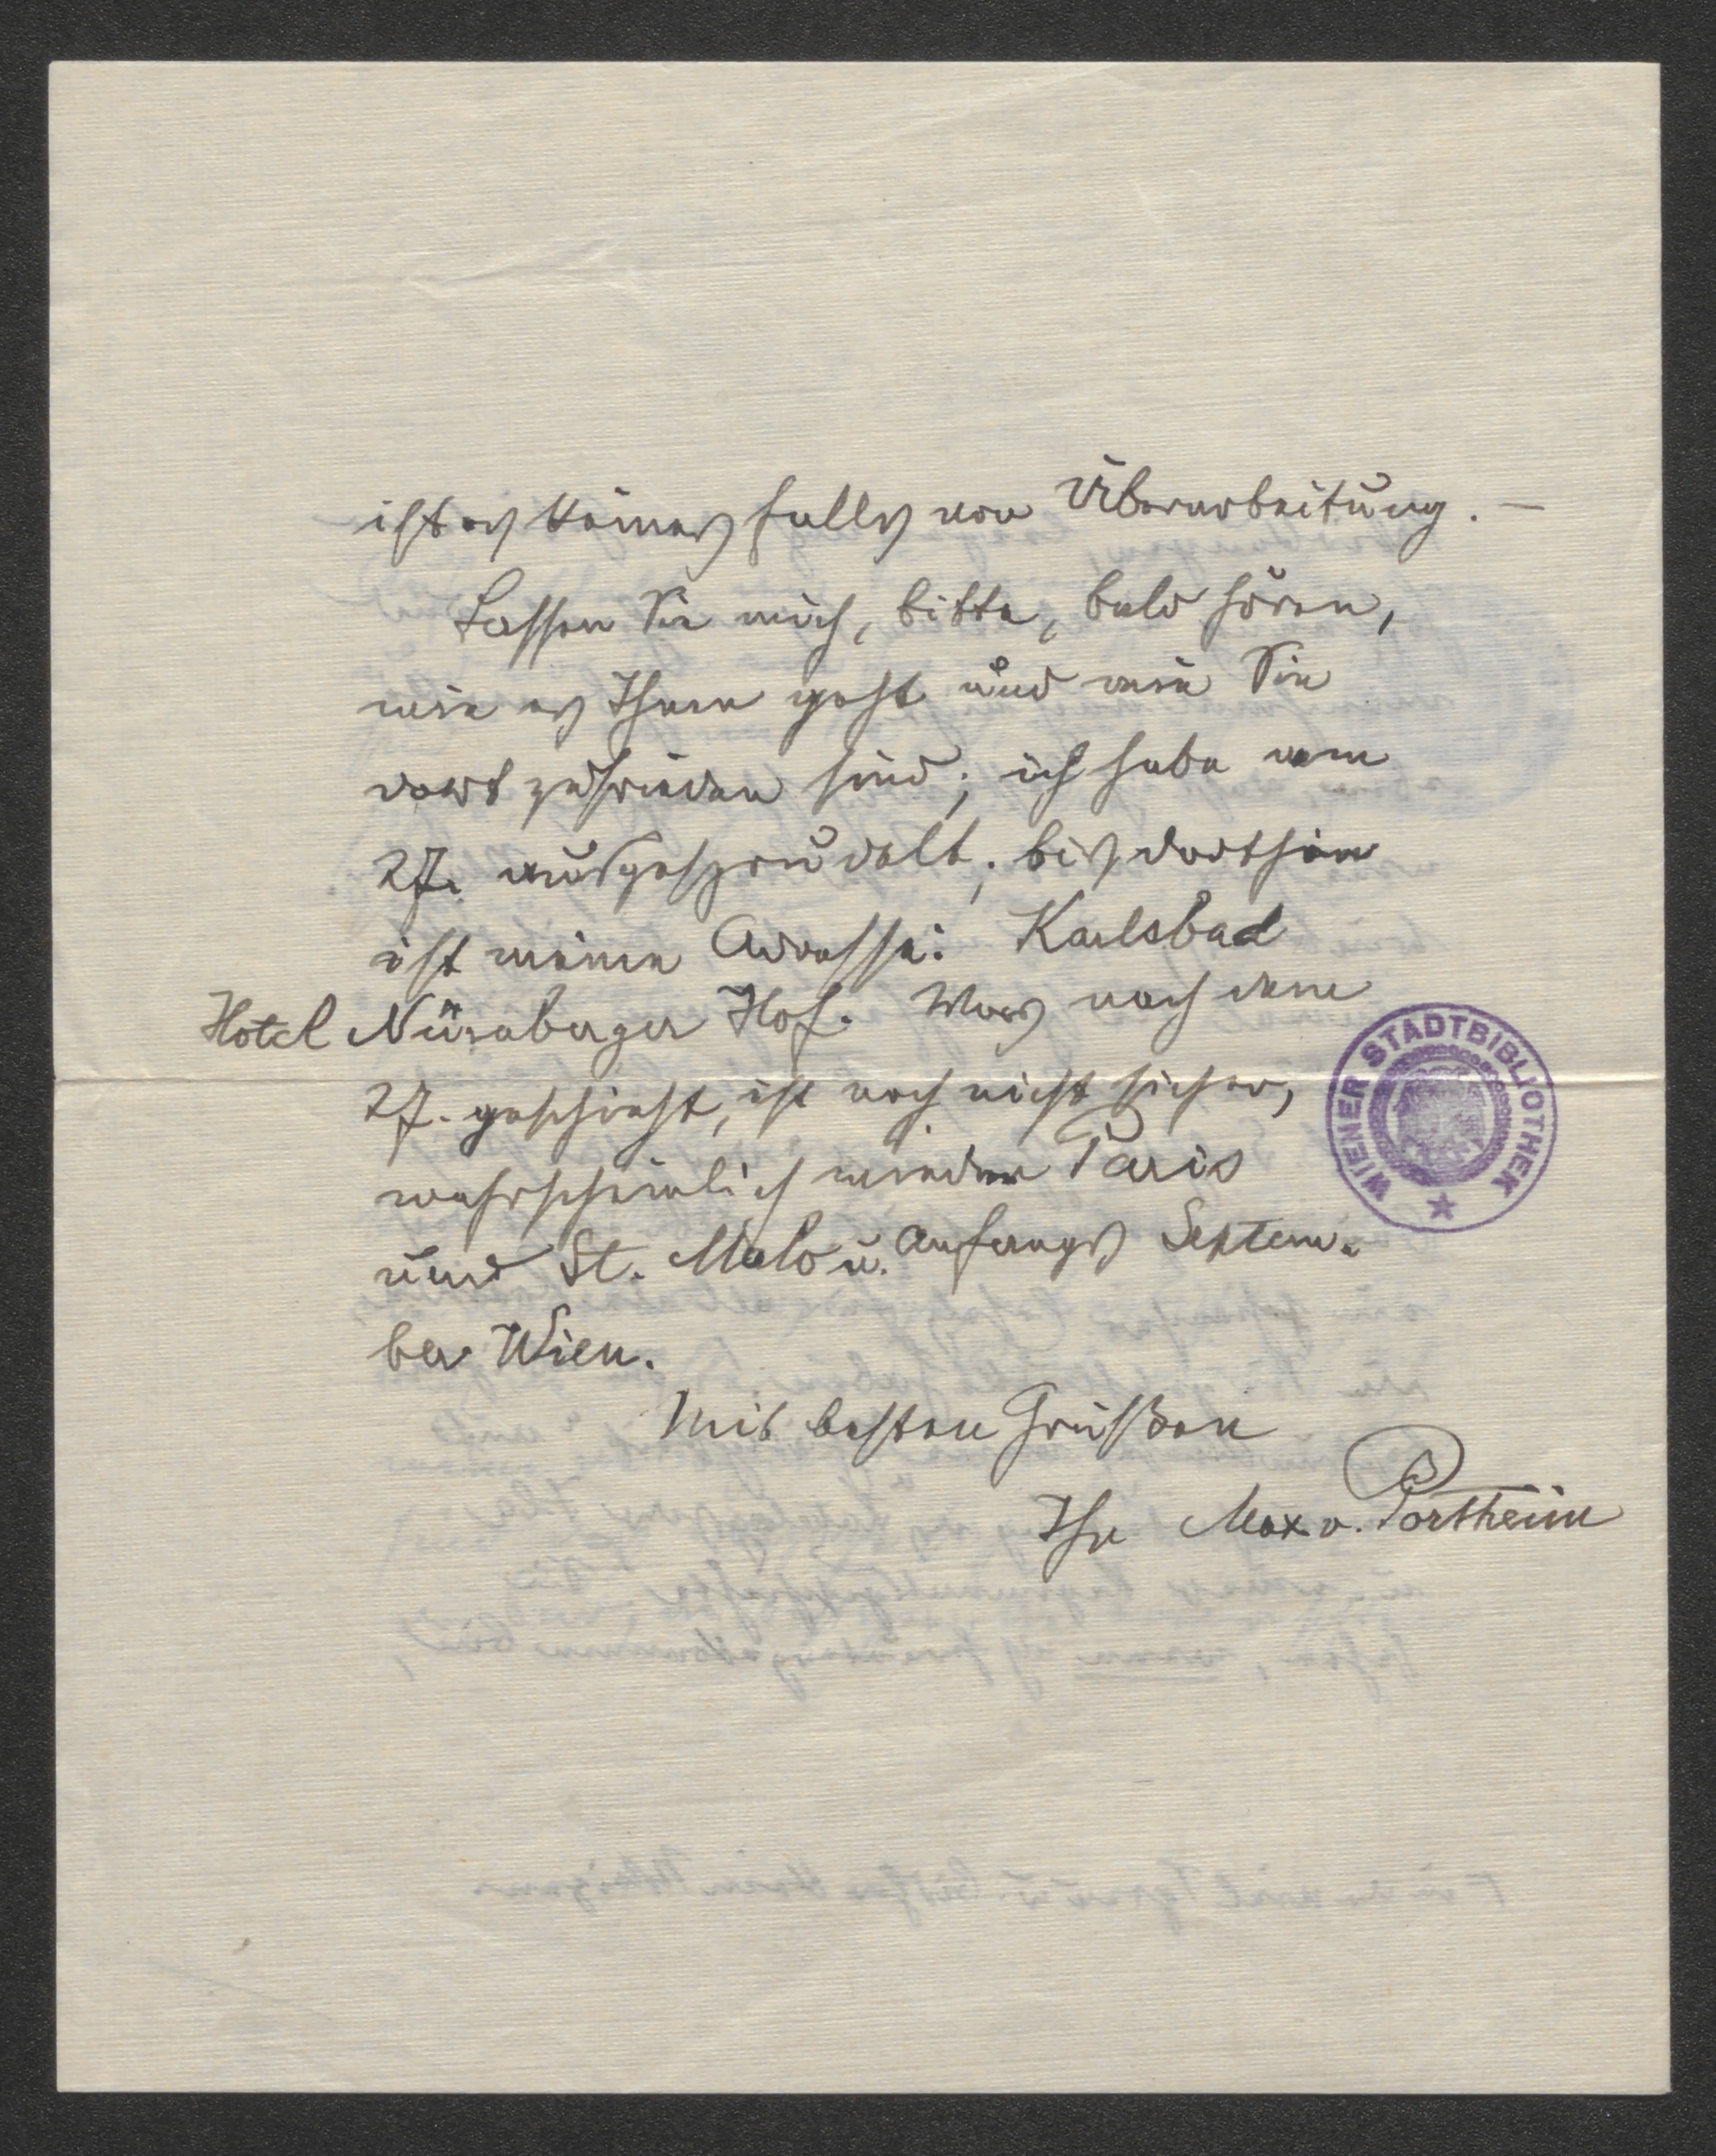 ist es keinesfalls von Überarbeitung. —
Lassen Sie mich, bitte, bald hören,
wie es Ihnen geht und wie Sie
dort zufrieden sind; ich habe am
27. ausgesprudelt; bis dorthin
ist meine Adresse: Karlsbad
Hotel Nürnberger Hof. Was nach dem
27. geschieht, ist noch nicht sicher,
wahrscheinlich wieder Paris
und St. Malo u. Anfangs Septem-
ber Wien.
Mit besten Grüßen
Ihr Max v. Portheim
WIENER STADTBIBLIOTHEK